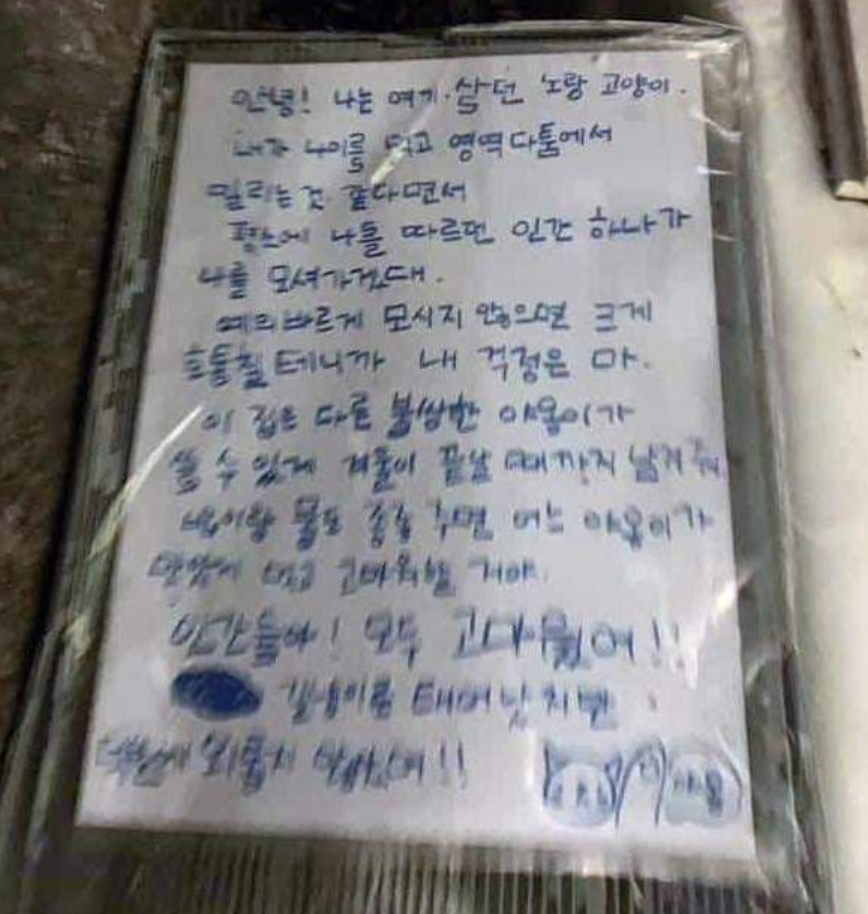 안녕! 나는 여기 살던 노랑 고양이.
내가 나이를 먹고 영역다툼에서
밀리는 것 같다면서
평소에 나를 따르던 인간 하나가
나를 모셔가겠대.
예의바르게 모시지 않으면 크게
호통칠 테니까 내 걱정은 마.
이 집은 다른 불쌍한 야옹이가
쓸 수 있게 겨울이 끝날 때까지 남겨 줘.
밥이랑 물도 종종 주면 어느 야옹이가
먹고 고마워할 거야.
인간들아! 모두 고마웠어!!
길냥이로 태어났지만
덕분에 외롭지 않았어!!
야옹